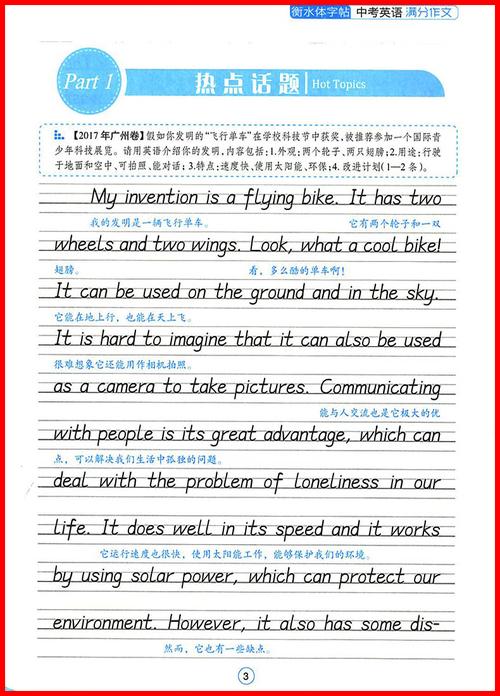 衡水体字帖 中考英语 满分作文
Part 1
热点话题 Hot Topics
【2017年广州卷】假如你发明的“飞行单车”在学校科技节中获奖,被推荐参加一个国际青
少年科技展览。请用英语介绍你的发明,内容包括:1.外观:两个轮子、两只翅膀;2.用途:行驶
于地面和空中、可拍照、能对话;3.特点:速度快、使用太阳能、环保;4.改进计划(1—2条)。
My invention is a flying bike. It has two
我的发明是一辆飞行单车。 它有两个轮子和一双
wheels and two wings. Look, what a cool bike!
翅膀。 看,多么酷的单车啊!
It can be used on the ground and in the sky.
它能在地上行,也能在天上飞。
It is hard to imagine that it can also be used
很难想象它还能用作相机拍照。
as a camera to take pictures. Communicating
能与人交流也是它极大的优
with people is its great advantage, which can
点,可以解决我们生活中孤独的问题。
deal with the problem of loneliness in our
life. It does well in its speed and it works
它运行速度也很快,使用太阳能工作,能够保护我们的环境。
by using solar power, which can protect our
environment. However, it also has some dis-
然而,它也有一些缺点。
3